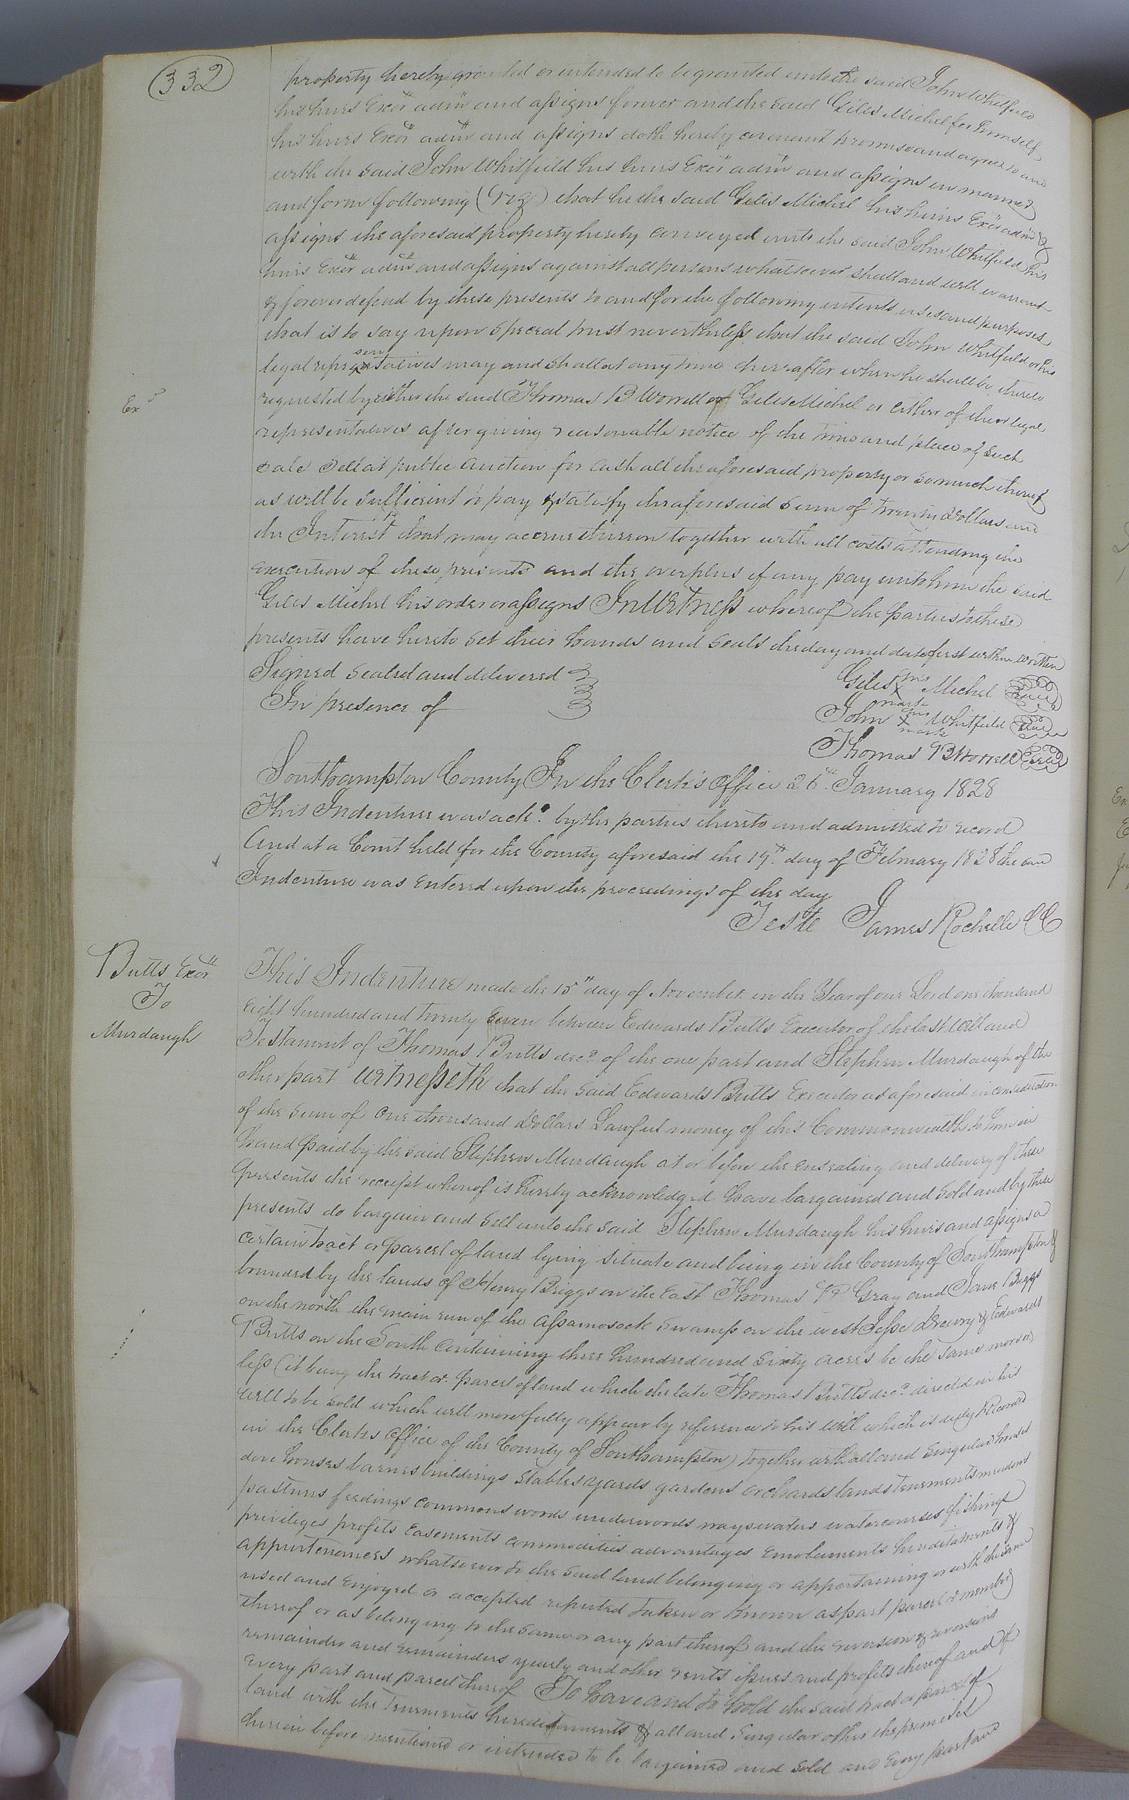 332
property hereby granted or intended to be granted unto the said John Whitfield
his heirs Exors admrs and assigns forever and the said Giles Michel for himself
his heirs Exors admrs and assigns doth hereby covenant promise and agree to and
with the said John Whitfield his heirs Exors admrs and assigns in manner
and form following (viz) that he the said Giles Michel his heirs Exors admrs &
assigns the aforesaid property hereby conveyed unto the said John Whitfield his
heirs Exors admrs and assigns against all persons whatsoever shall and will warrant
& forever defend by these presents to and for the following intents uses and purposes
that is to say upon special trust nevertheless that the said John Whitfield or his
legal representatives may and shall at any time hereafter when he shall be thereto
Exd
requested by either the said Thomas B Worrell or Giles Michel or either of their legal
representatives after giving reasonable notice of the time and place of such
sale sell at public auction for cash all the aforesaid property or so much thereof
as will be sufficient to pay & satisfy the aforesaid sum of twenty Dollars and
the Interest that may accrue thereon together with all costs attending the
execution of these presents and the overplus if any pay unto him the said
Giles Michel his order or assigns In Witness whereof the parties to these
presents have hereto set their hands and seals the day and date first within written
Signed Sealed and delivered
In presence of
Giles his X mark Michel Seal
John his X mark Whitfield Seal
Thomas B Worrell Seal
Southampton County In the Clerk's Office 26th January 1828
This Indenture was ackd. by the parties thereto and admitted to record
And at a Court held for the County aforesaid the 19th day of February 1828 the sd
Indenture was entered upon the proceedings of the day
Teste James Rochelle CC
Butts Exor
To
Murdaugh
This Indenture made the 15th day of November in the Year of our Lord one thousand
eight hundred and twenty seven between Edwards Butts Executor of the last will and
Testament of Thomas Butts decd. of the one part and Stephen Murdaugh of the
other part Witnesseth that the said Edwards Butts Executor as aforesaid in consideration
of the sum of One thousand Dollars Lawful money of this Commonwealth to him in
hand paid by the said Stephen Murdaugh at or before the ensealing and delivery of these
presents the receipt whereof is hereby acknowledged have bargained and sold and by these
presents do bargain and sell unto the said Stephen Murdaugh his heirs and assigns a
certain tract or parcel of land lying situate and being in the County of Southampton &
bounded by the lands of Henry Briggs on the East Thomas Gray and Jane Briggs
on the north the main run of the Assamosock Swamp on the west Jesse Drewry & Edwards
Butts on the South containing three hundred and sixty acres be the same more or
less (it being the tract or parcel of land which the late Thomas Butts decd. directed in his
will to be sold which will more fully appear by reference to his will which is duly recorded
in the Clerks Office of the County of Southampton) together with all and singular houses
dove houses barnes buildings stables yards gardens orchards lands tenements meadows
pastures feedings commons woods underwoods ways waters watercourses fishings
privileges profits easements commodities advantages emoluments hereditaments &
appurtenances whatsoever to the said land belonging or appertaining or with the same
used and enjoyed or accepted reputed taken or known as part parcel or member
thereof or as belonging to the same or any part thereof and the reversion & reversions
remainder and remainders yearly and other rents issues and profits thereof and of
every part and parcel thereof To have and to hold the said tract or parcel of
land with the tenements hereditaments & all and singular other the premises
herein before mentioned or intended to be bargained and sold and every part and